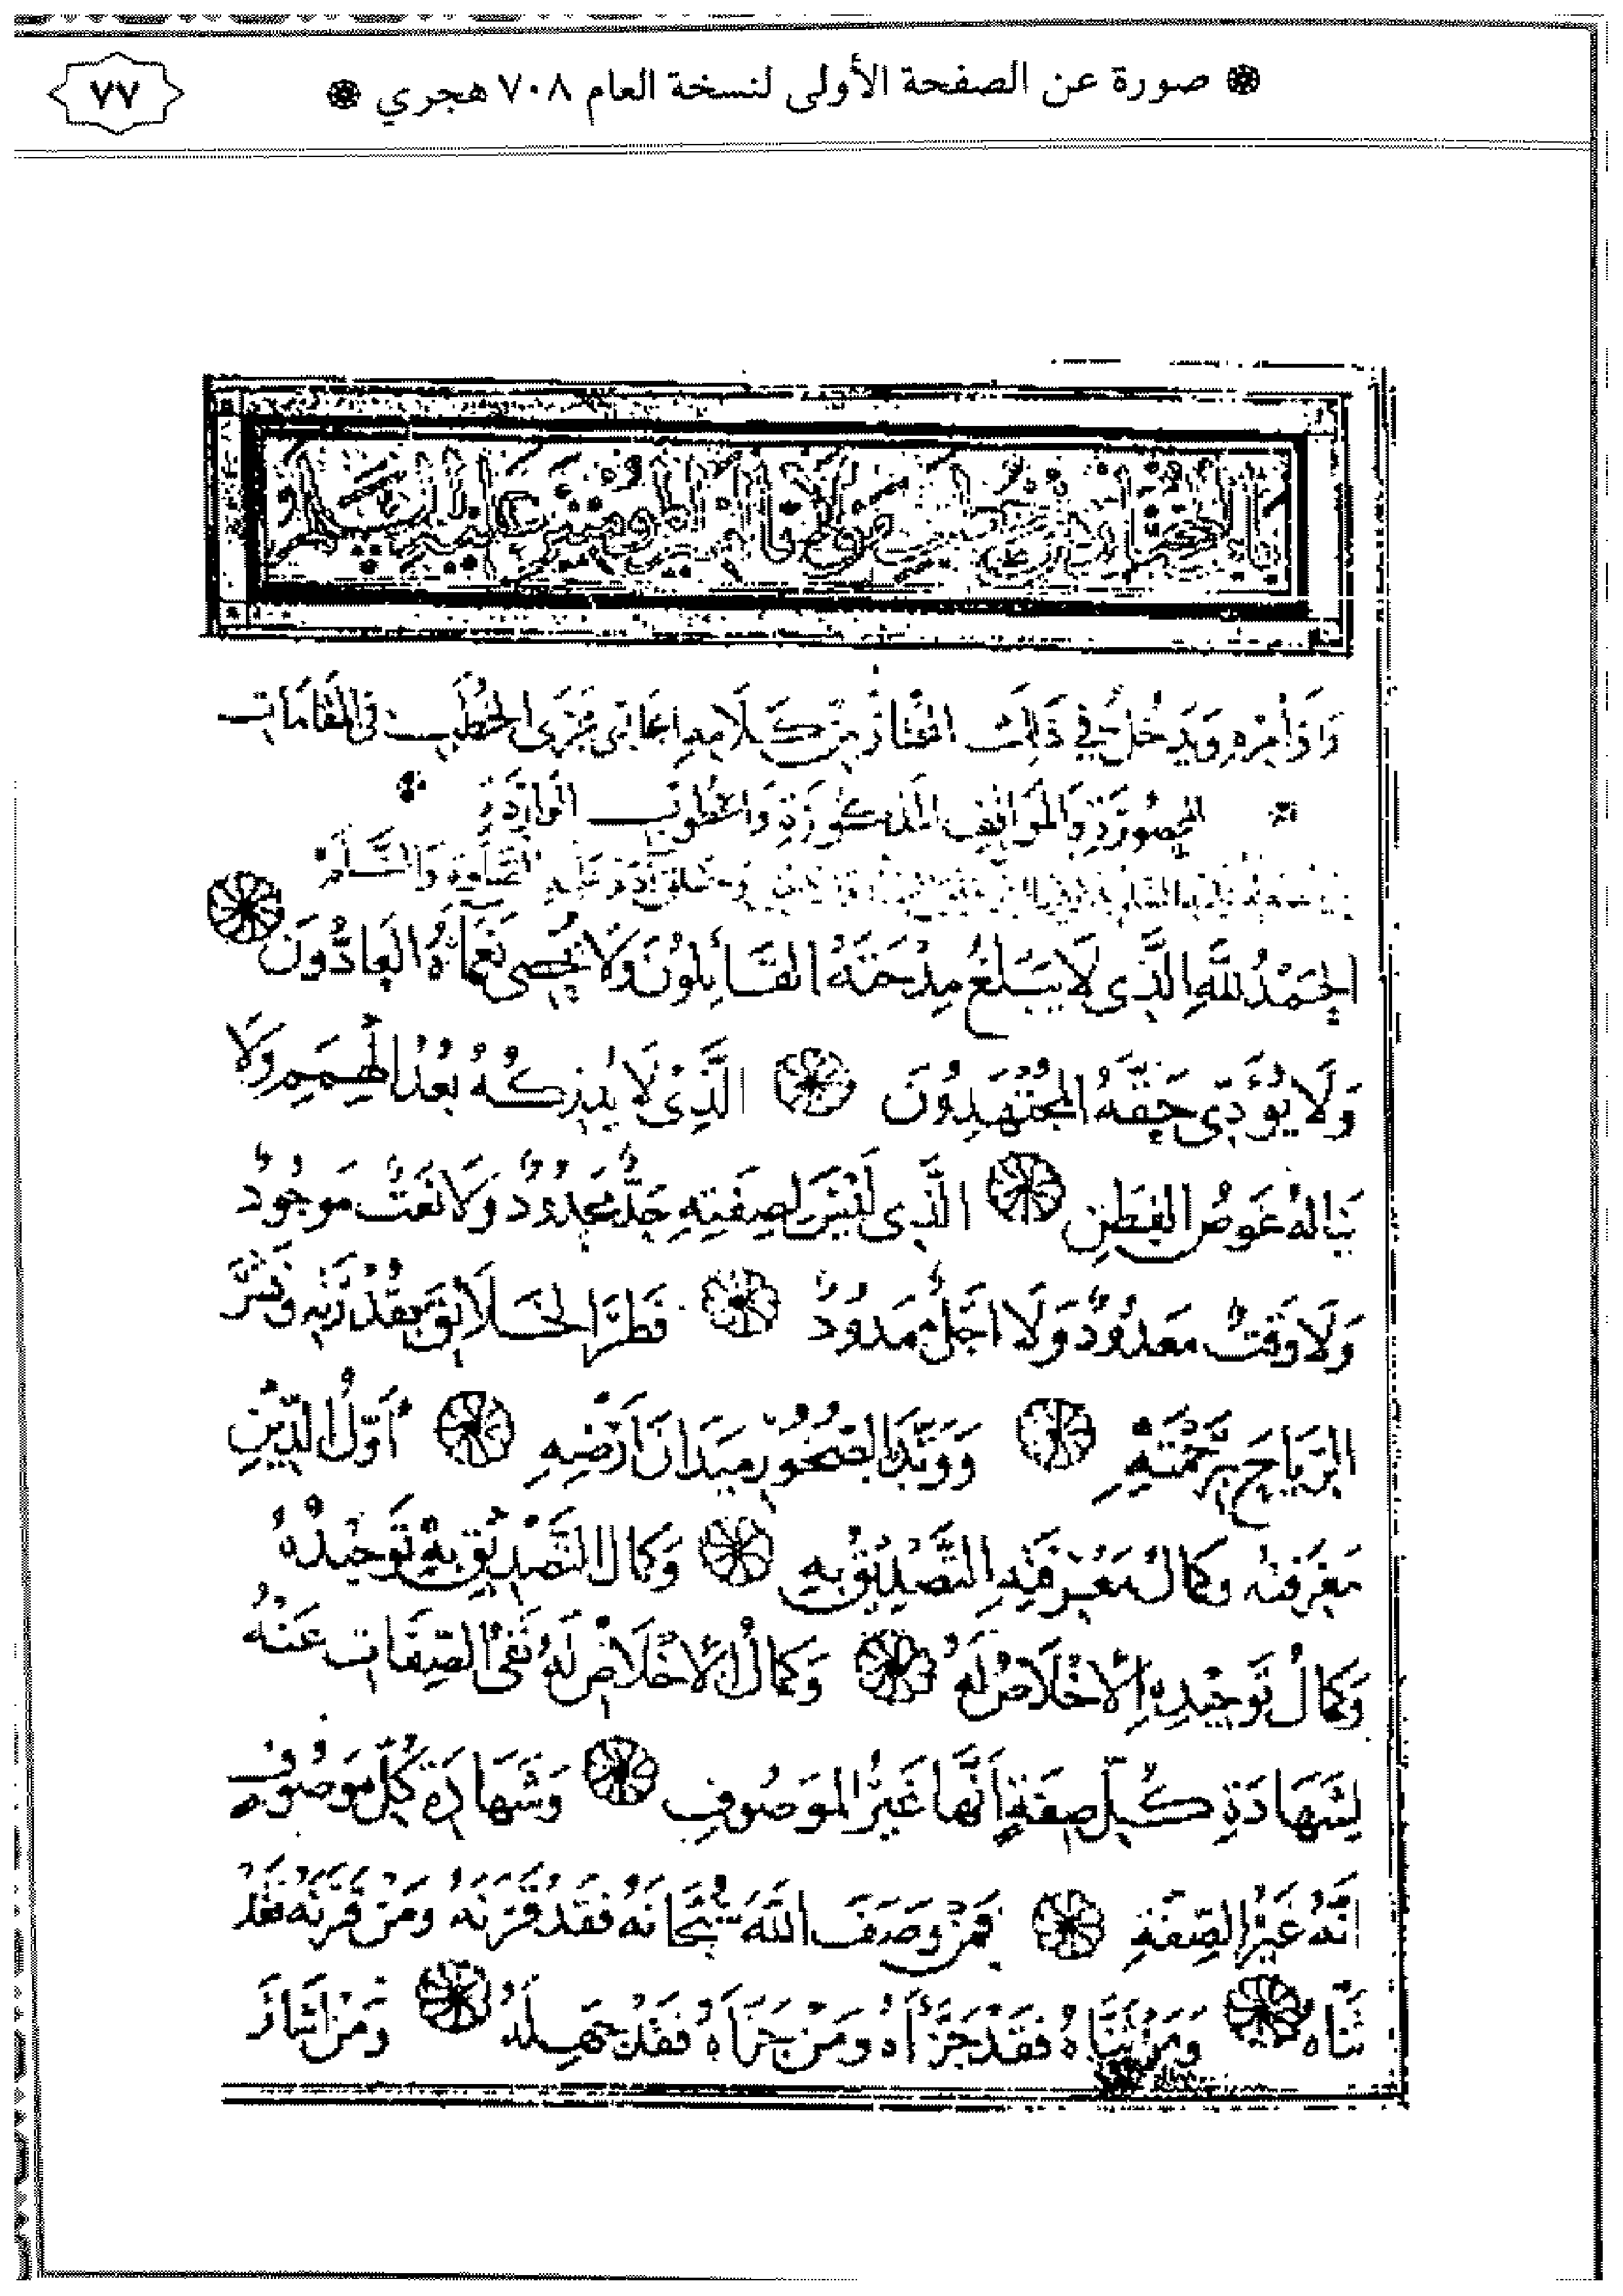 صورة عن الصفحة الأولى لنسخة العام ٧٠٨ هجري
٧٧
باب المختار من خطب مولانا أمير المؤمنين عليه السلام
وَأَوَامِرِهِ وَيَدخُلُ فِي ذَلِكَ المختارُ مِن كَلَامِهِ الجَارِي مَجْرَى الخُطَبِ فى المَقَامَاتِ
المحصُورَةِ وَالمَوَاقِفِ المَذكُورَةِ وَالخُطُوبِ الوَارِدَةِ
وَخَلقَ آدَمَ عَلَيهِ الصَّلوةُ وَالسَّلَمُ
الحَمْدُ للهِ الَّذِى لَا يَبْلُغُ مِدْحَتَهُ القَائِلُونَ وَلَا يُحصِى نَعْمَاءَهُ العَادُّونَ
وَلَا يُؤَدِّى حَقَّهُ المُجْتَهِدُونَ الَّذِى لَا يُدْرِكُهُ بُعْدُ الهِمَمِ وَلَا
يَنَالُهُ غَوصُ الفِطَنِ الَّذِى لَيْسَ لِصِفَتِهِ حَدٌّ مَحْدُودٌ وَلَا نَعْتٌ مَوجُودٌ
وَلَا وَقتٌ مَعدُودٌ وَلَا اَجَلٌ مَمدُودٌ فَطَرَ الخَلَائِقَ بِقُدْرَتِهِ وَنَشَرَ
الرِّيَاحَ بِرَحْمَتِهِ وَوَتَّدَ بِالصُّخُورِ مَيَدَانَ اَرْضِهِ اَوَّلُ الدِّينِ
مَعْرِفَتُهُ وَكَمَالُ مَعْرِفَتِهِ التَّصْدِيقُ بِهِ وَكَمَالُ التَّصْدِيقِ بِهِ تَوحِيْدُهُ
وَكَمَالُ تَوحِيْدِهِ الإِخْلَاصُ لَهُ وَكَمَالُ الإِخْلَاصِ لَهُ نَفىُ الصِّفَاتِ عَنْهُ
لِشَهَادَةِ كُلِّ صِفَةٍ اَنَّهَا غَيْرُ المَوصُوفِ وَشَهَادَةِ كُلِّ مَوصُوفٍ
اَنَّهُ غَيْرُ الصِّفَةِ فَمَنْ وَصَفَ اللهَ سُبْحَانَهُ فَقَد قَرَنَهُ وَمَنْ قَرَنَهُ فَقَدْ
ثَنَّاهُ وَمَنْ ثَنَّاهُ فَقَدْ جَزَّأَهُ وَمَنْ جَزَّأَهُ فَقَدْ جَهِلَهُ وَمَنْ اَشَارَ